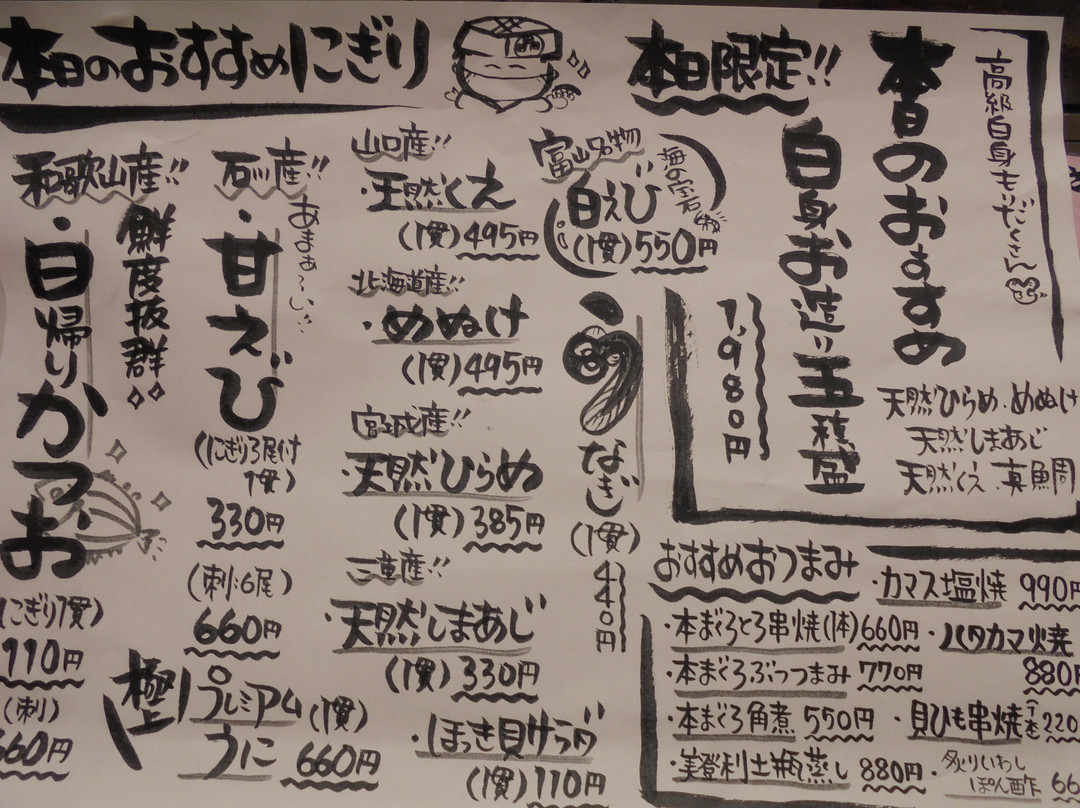 高級白身もりだくさん
本日のおすすめ
天然ひらめ・めぬけ
天然しまあじ
天然くえ・真鯛
本日限定!!
白身お造り五種盛
1,980円
おすすめおつまみ
・カマス塩焼 990円
・本まぐろとろ串焼(1本) 660円
・ハタカマ焼 880円
・本まぐろぶつつまみ 770円
・本まぐろ角煮 550円
・貝ひも串焼 1本 220
・美登利土瓶蒸し 880円
・炙りいわしぽん酢 66
本日のおすすめにぎり
富山名物
海の宝石
白えび
(1貫) 550円
・うなぎ
(1貫)
440円
山口産!!
・天然くえ
(1貫) 495円
北海道産!!
・めぬけ
(1貫) 495円
宮城産!!
・天然ひらめ
(1貫) 385円
三重産!!
・天然しまあじ
(1貫) 330円
・ほっき貝サラダ
(1貫) 110円
石川産!!
あまぁ〜い!!
・甘えび
(にぎり3尾付
1貫)
330円
(刺:6尾)
660円
極上
プレミアム
うに
(1貫)
660円
和歌山産!!
鮮度抜群
・日帰りかつお
(にぎり1貫)
110円
(刺)
660円